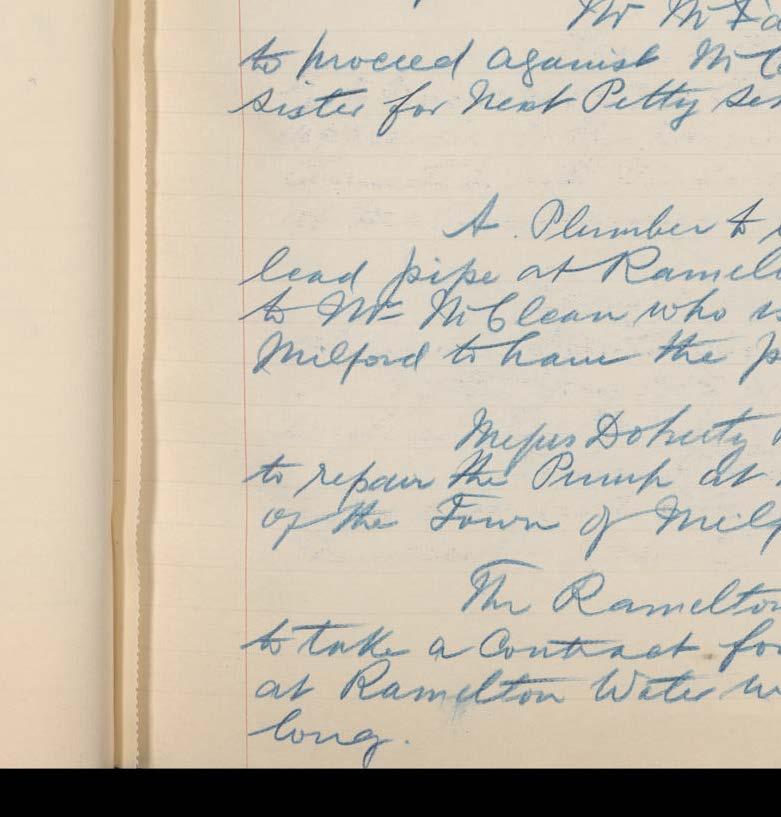 Mr McFa
to proceed against McC
sister for next Petty Ses
A. Plumber to
lead pipe at Ramel
to Mr McClean who is
Milford to have the p
Messrs Doherty
to repair the Pump at
of the Town of Milf
The Ramelton
to take a Contract for
at Ramelton Water w
long.